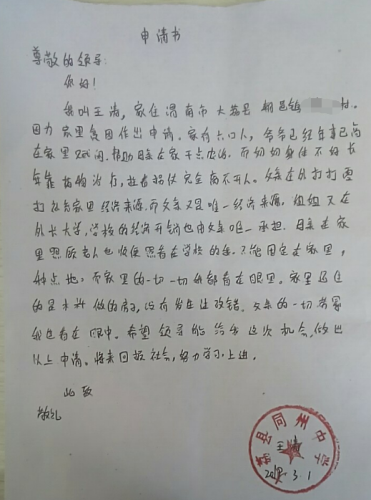 申请书
尊敬的领导:
你好!
我叫王涛,家住渭南市大荔县朝邑镇 村。
因为家里贫困作出申请。家有六口人,爷爷已经年事已高
在家里 ,帮助母亲在家干点农活,而奶奶身体不好长
年靠药物治疗,拉着病仗完全离不开人。父亲在外打打零
打 为家里经济来源,而父亲又是唯一经济来源,姐姐又在
外上大学,学校的经济开销也由父亲唯一承担。母亲在家
里照顾老人也得照看在学校的我。只能固定在家里,
种点地。而家里的一切一切我都看在眼里。家里居住
的是木料做的房子,没有发生过改错。父亲的一切劳累
我也看在眼中。希望领导能给我这次机会,做出
以上申请。将来回报社会,努力学习上进。
此致
敬礼
县同州中学
王涛
3.1